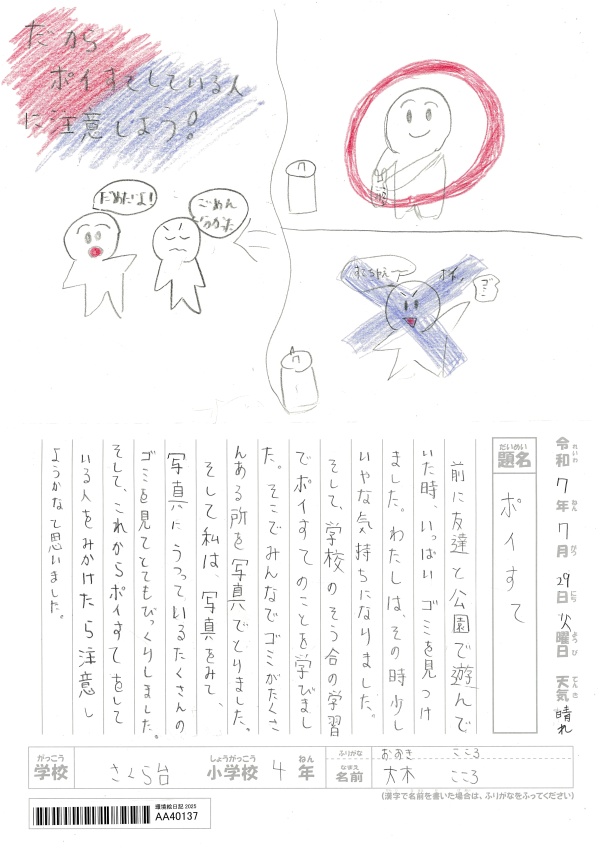 だから
ポイすてしている人
に注意しよう!
だめだよ!
ごめん
ポイ
ゴミ
れいわ ねん がつ にち ようび てんき
令和7年7月29日火曜日 天気 晴れ
だいめい
題名
ポイすて
前に友達と公園で遊んで
いた時、いっぱいゴミを見つけ
ました。わたしは、その時少し
いやな気持ちになりました。
そして、学校のそう合の学習
でポイすてのことを学びまし
た。そこでみんなでゴミがたくさ
んある所を写真でとりました。
そして私は、写真をみて、
写真にうつっているたくさんの
ゴミを見てとてもびっくりしました。
そして、これからポイすてをして
いる人をみかけたら注意し
ようかなて思いました。
がっこう しょうがっこう ねん
学校 さくら台 小学校 4年
ふりがな おおき こころ
なまえ
名前 大木 こころ
(漢字で名前を書いた場合は、ふりがなをふってください)
環境絵日記 2025
AA40137